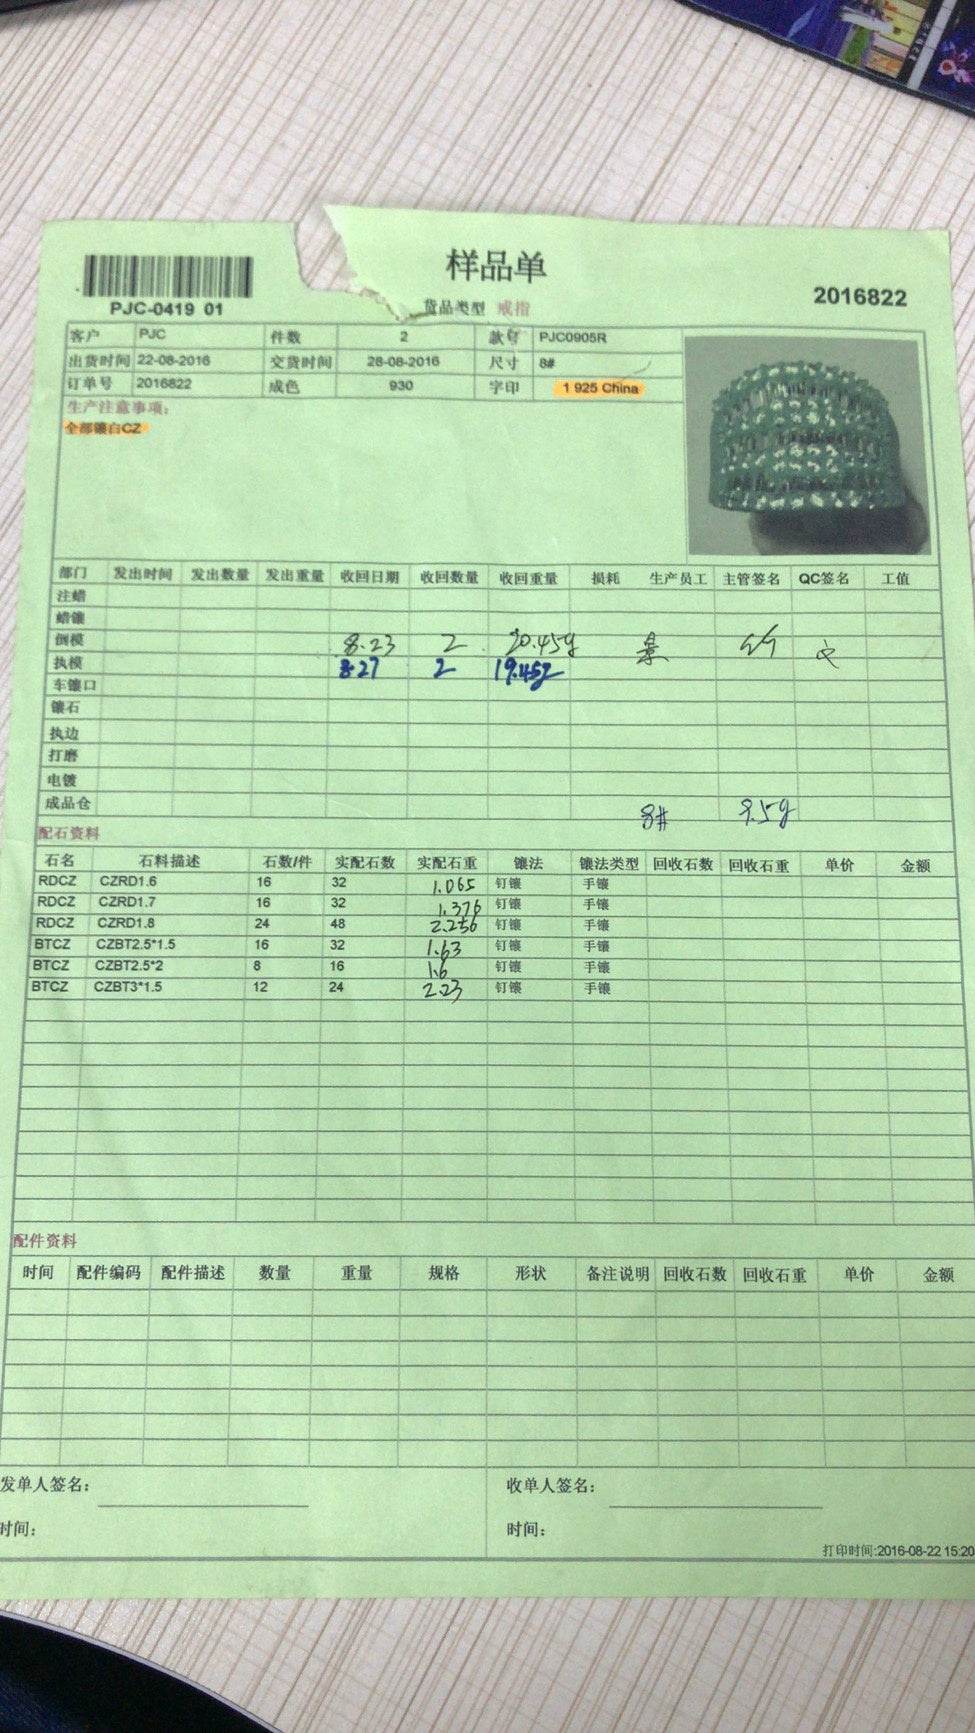 样品单
PJC-0419 01
货品类型 戒指
2016822
客户 PJC 件数 2 款号 PJC0905R
出货时间 22-08-2016 交货时间 28-08-2016 尺寸 8#
订单号 2016822 成色 930 字印 1 925 China
生产注意事项:
全部镶白CZ
部门 发出时间 发出数量 发出重量 收回日期 收回数量 收回重量 损耗 生产员工 主管签名 QC签名 工值
注蜡
蜡镶
倒模 8.23 2 20.45g
执模 8.27 2 19.45g
车镶口
镶石
执边
打磨
电镀
成品仓 8# 9.5g
配石资料
石名 石料描述 石数/件 实配石数 实配石重 镶法 镶法类型 回收石数 回收石重 单价 金额
RDCZ CZRD1.6 16 32 1.065 钉镶 手镶
RDCZ CZRD1.7 16 32 1.376 钉镶 手镶
RDCZ CZRD1.8 24 48 2.256 钉镶 手镶
BTCZ CZBT2.5*1.5 16 32 1.63 钉镶 手镶
BTCZ CZBT2.5*2 8 16 1.6 钉镶 手镶
BTCZ CZBT3*1.5 12 24 2.23 钉镶 手镶
配件资料
时间 配件编码 配件描述 数量 重量 规格 形状 备注说明 回收石数 回收石重 单价 金额
发单人签名: 收单人签名:
时间: 时间:
打印时间:2016-08-22 15:20